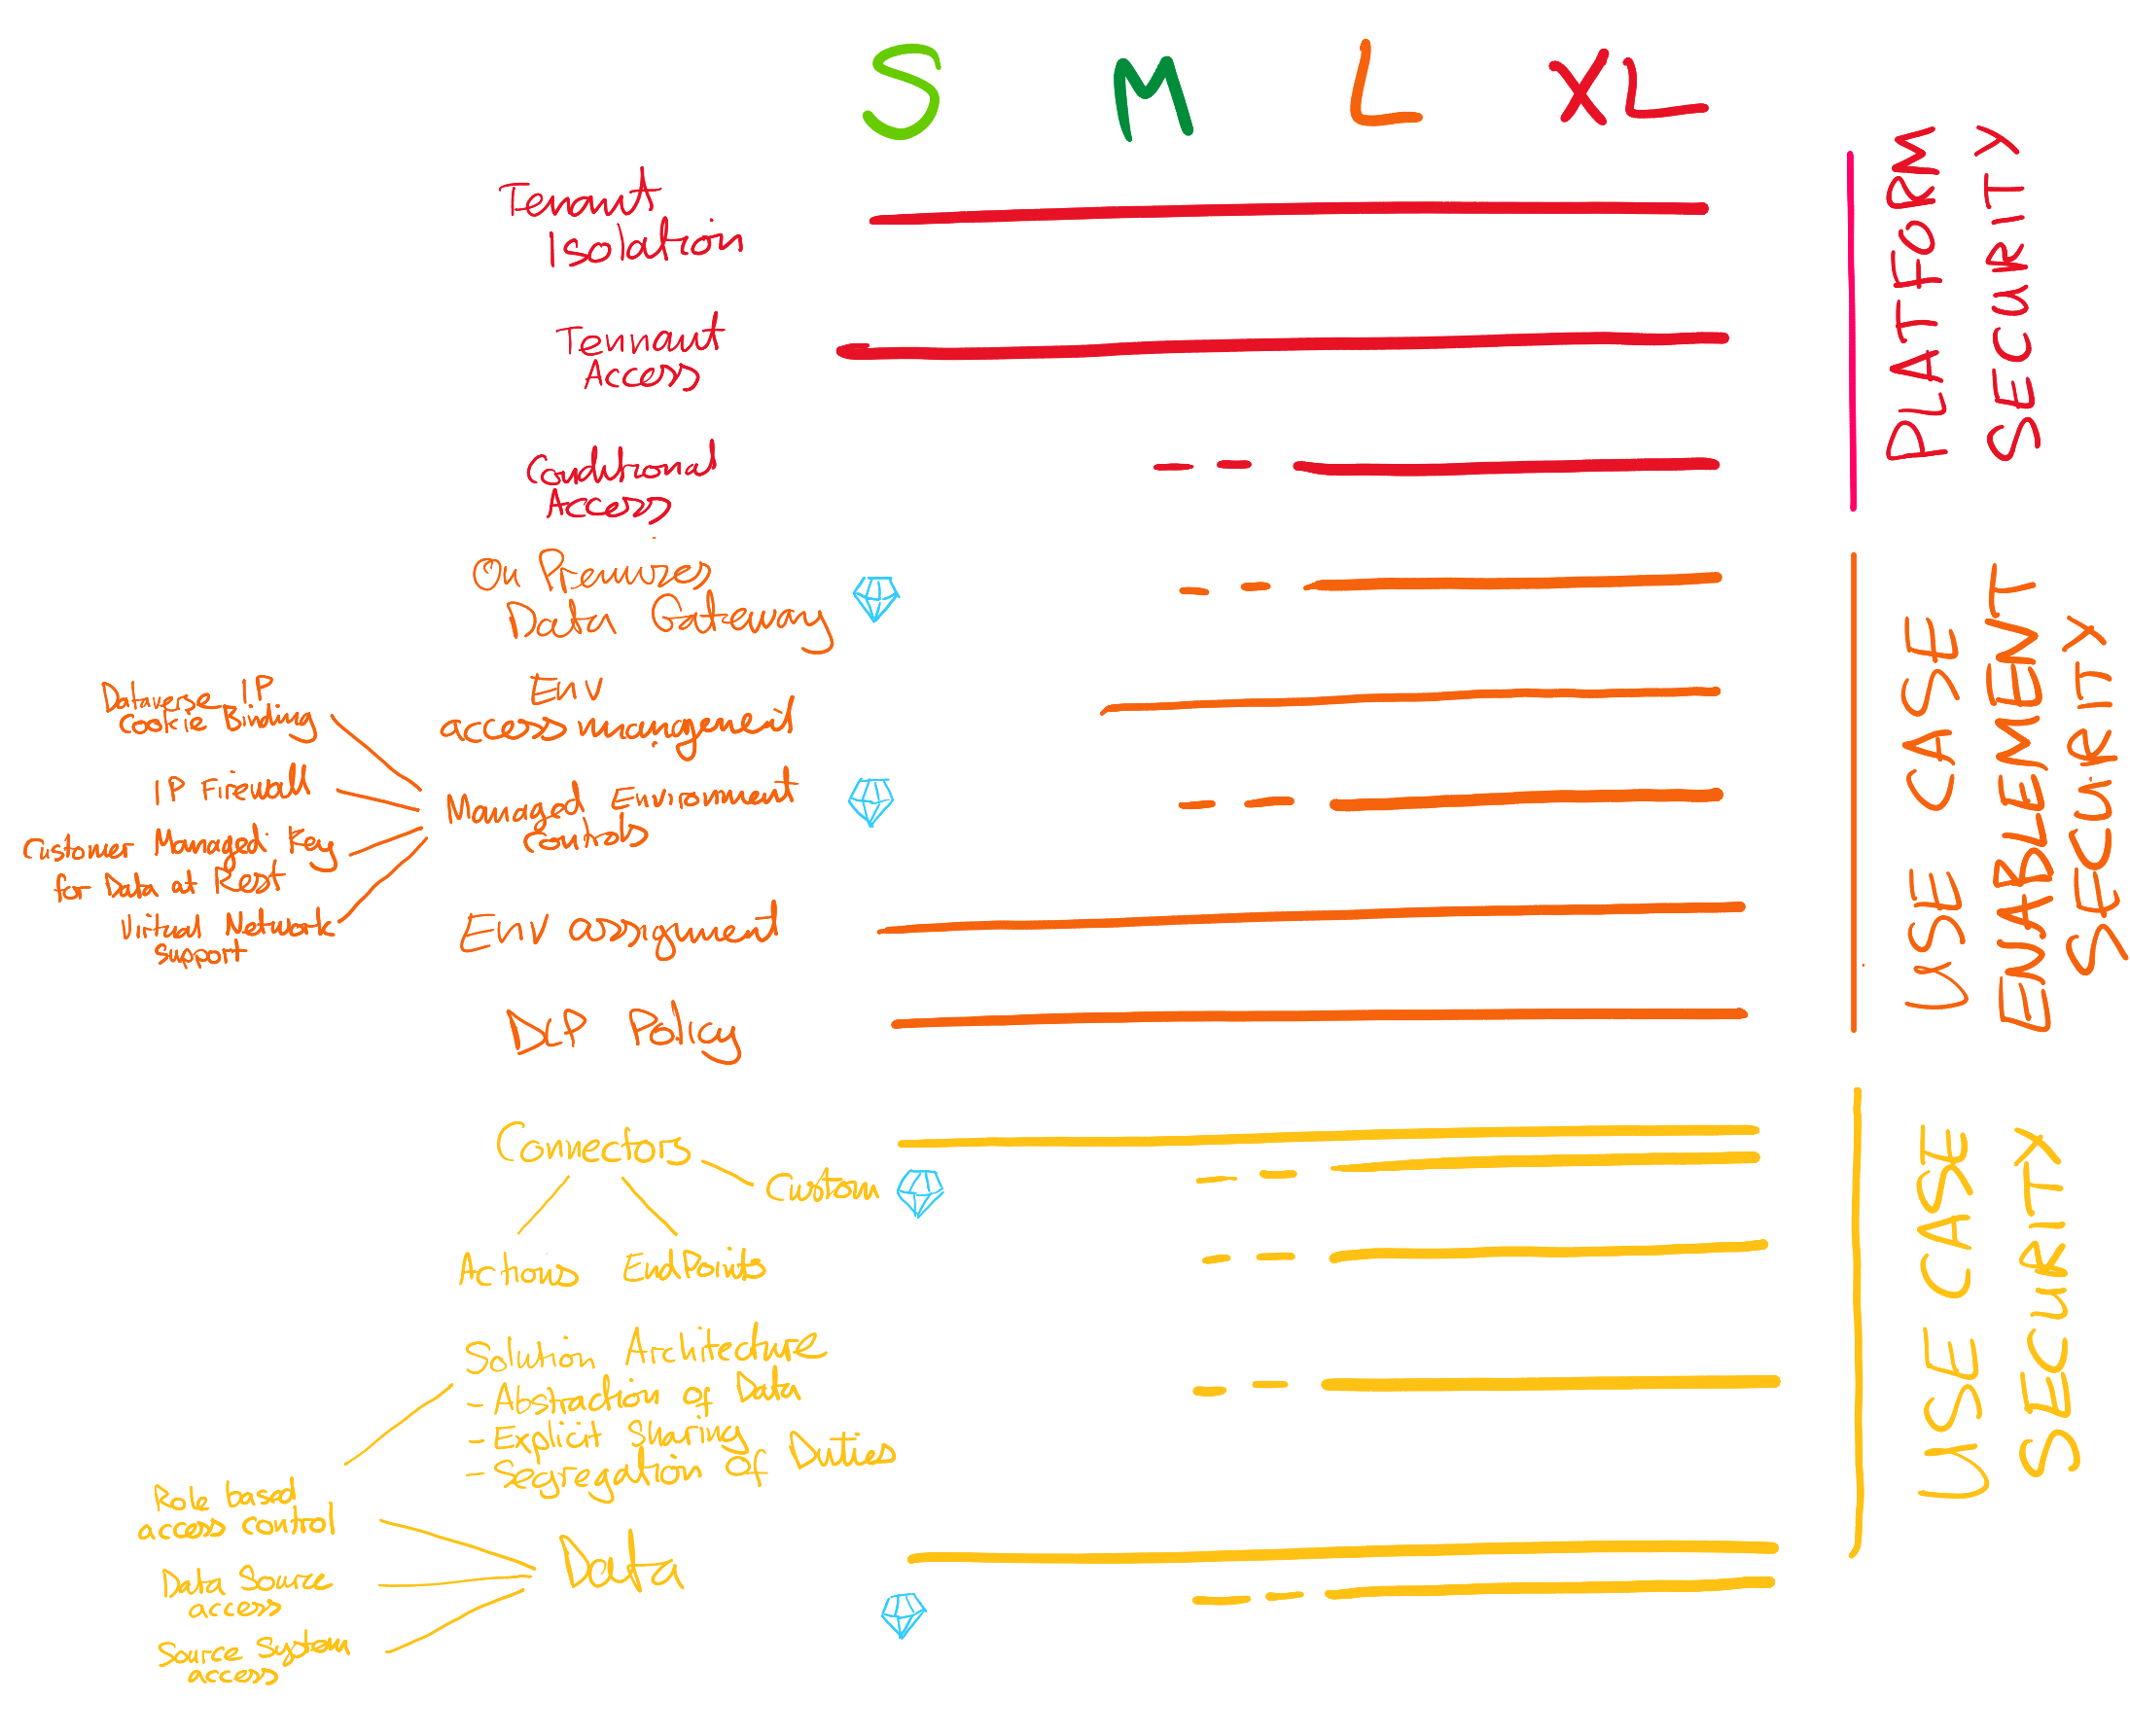 S M L XL
Tenant
Isolation
Tennant
Access
Conditional
Access
PLATFORM
SECURITY
On Premizes
Data Gateway
Env
access management
Managed Environment
Controls
Dataverse IP
Cookie Binding
IP Firewall
Customer Managed Key
for Data at Rest
Virtual Network
Support
Env assignment
DLP Policy
USE CASE
ENABLEMENT
SECURITY
Connectors
Custom
Actions EndPoints
Solution Architecture
- Abstraction of Data
- Explicit Sharing
- Segregation Of Duties
Role based
access control
Data Source
access
Source System
access
Data
USE CASE
SECURITY